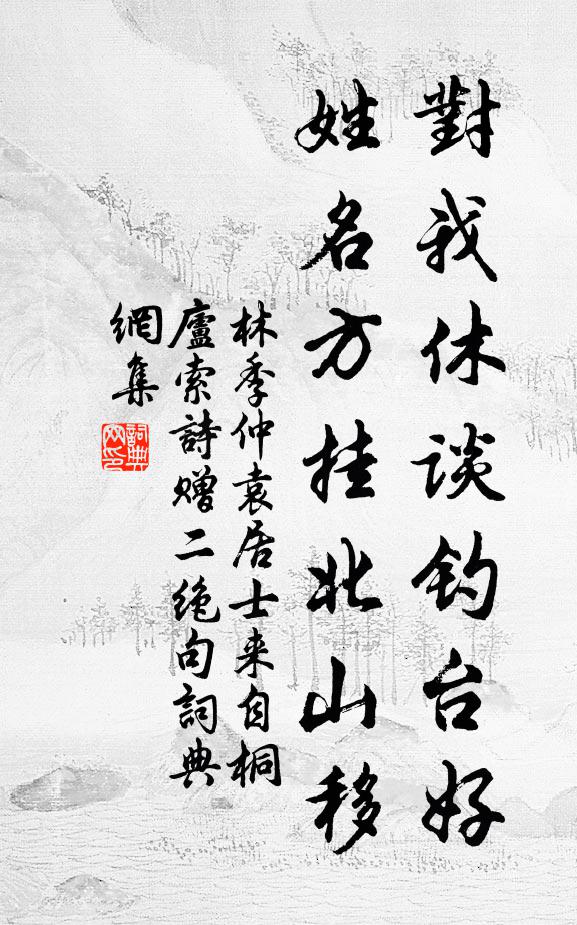 對我休談釣台好
姓名方挂北山移
林季仲袁居士来自桐
廬索詩贈二絶句詞典
網集
詞典
网印